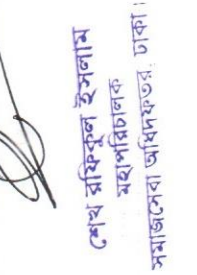 শেখ রফিকুল ইসলাম
মহাপরিচালক
সমাজসেবা অধিদফতর, ঢাকা।